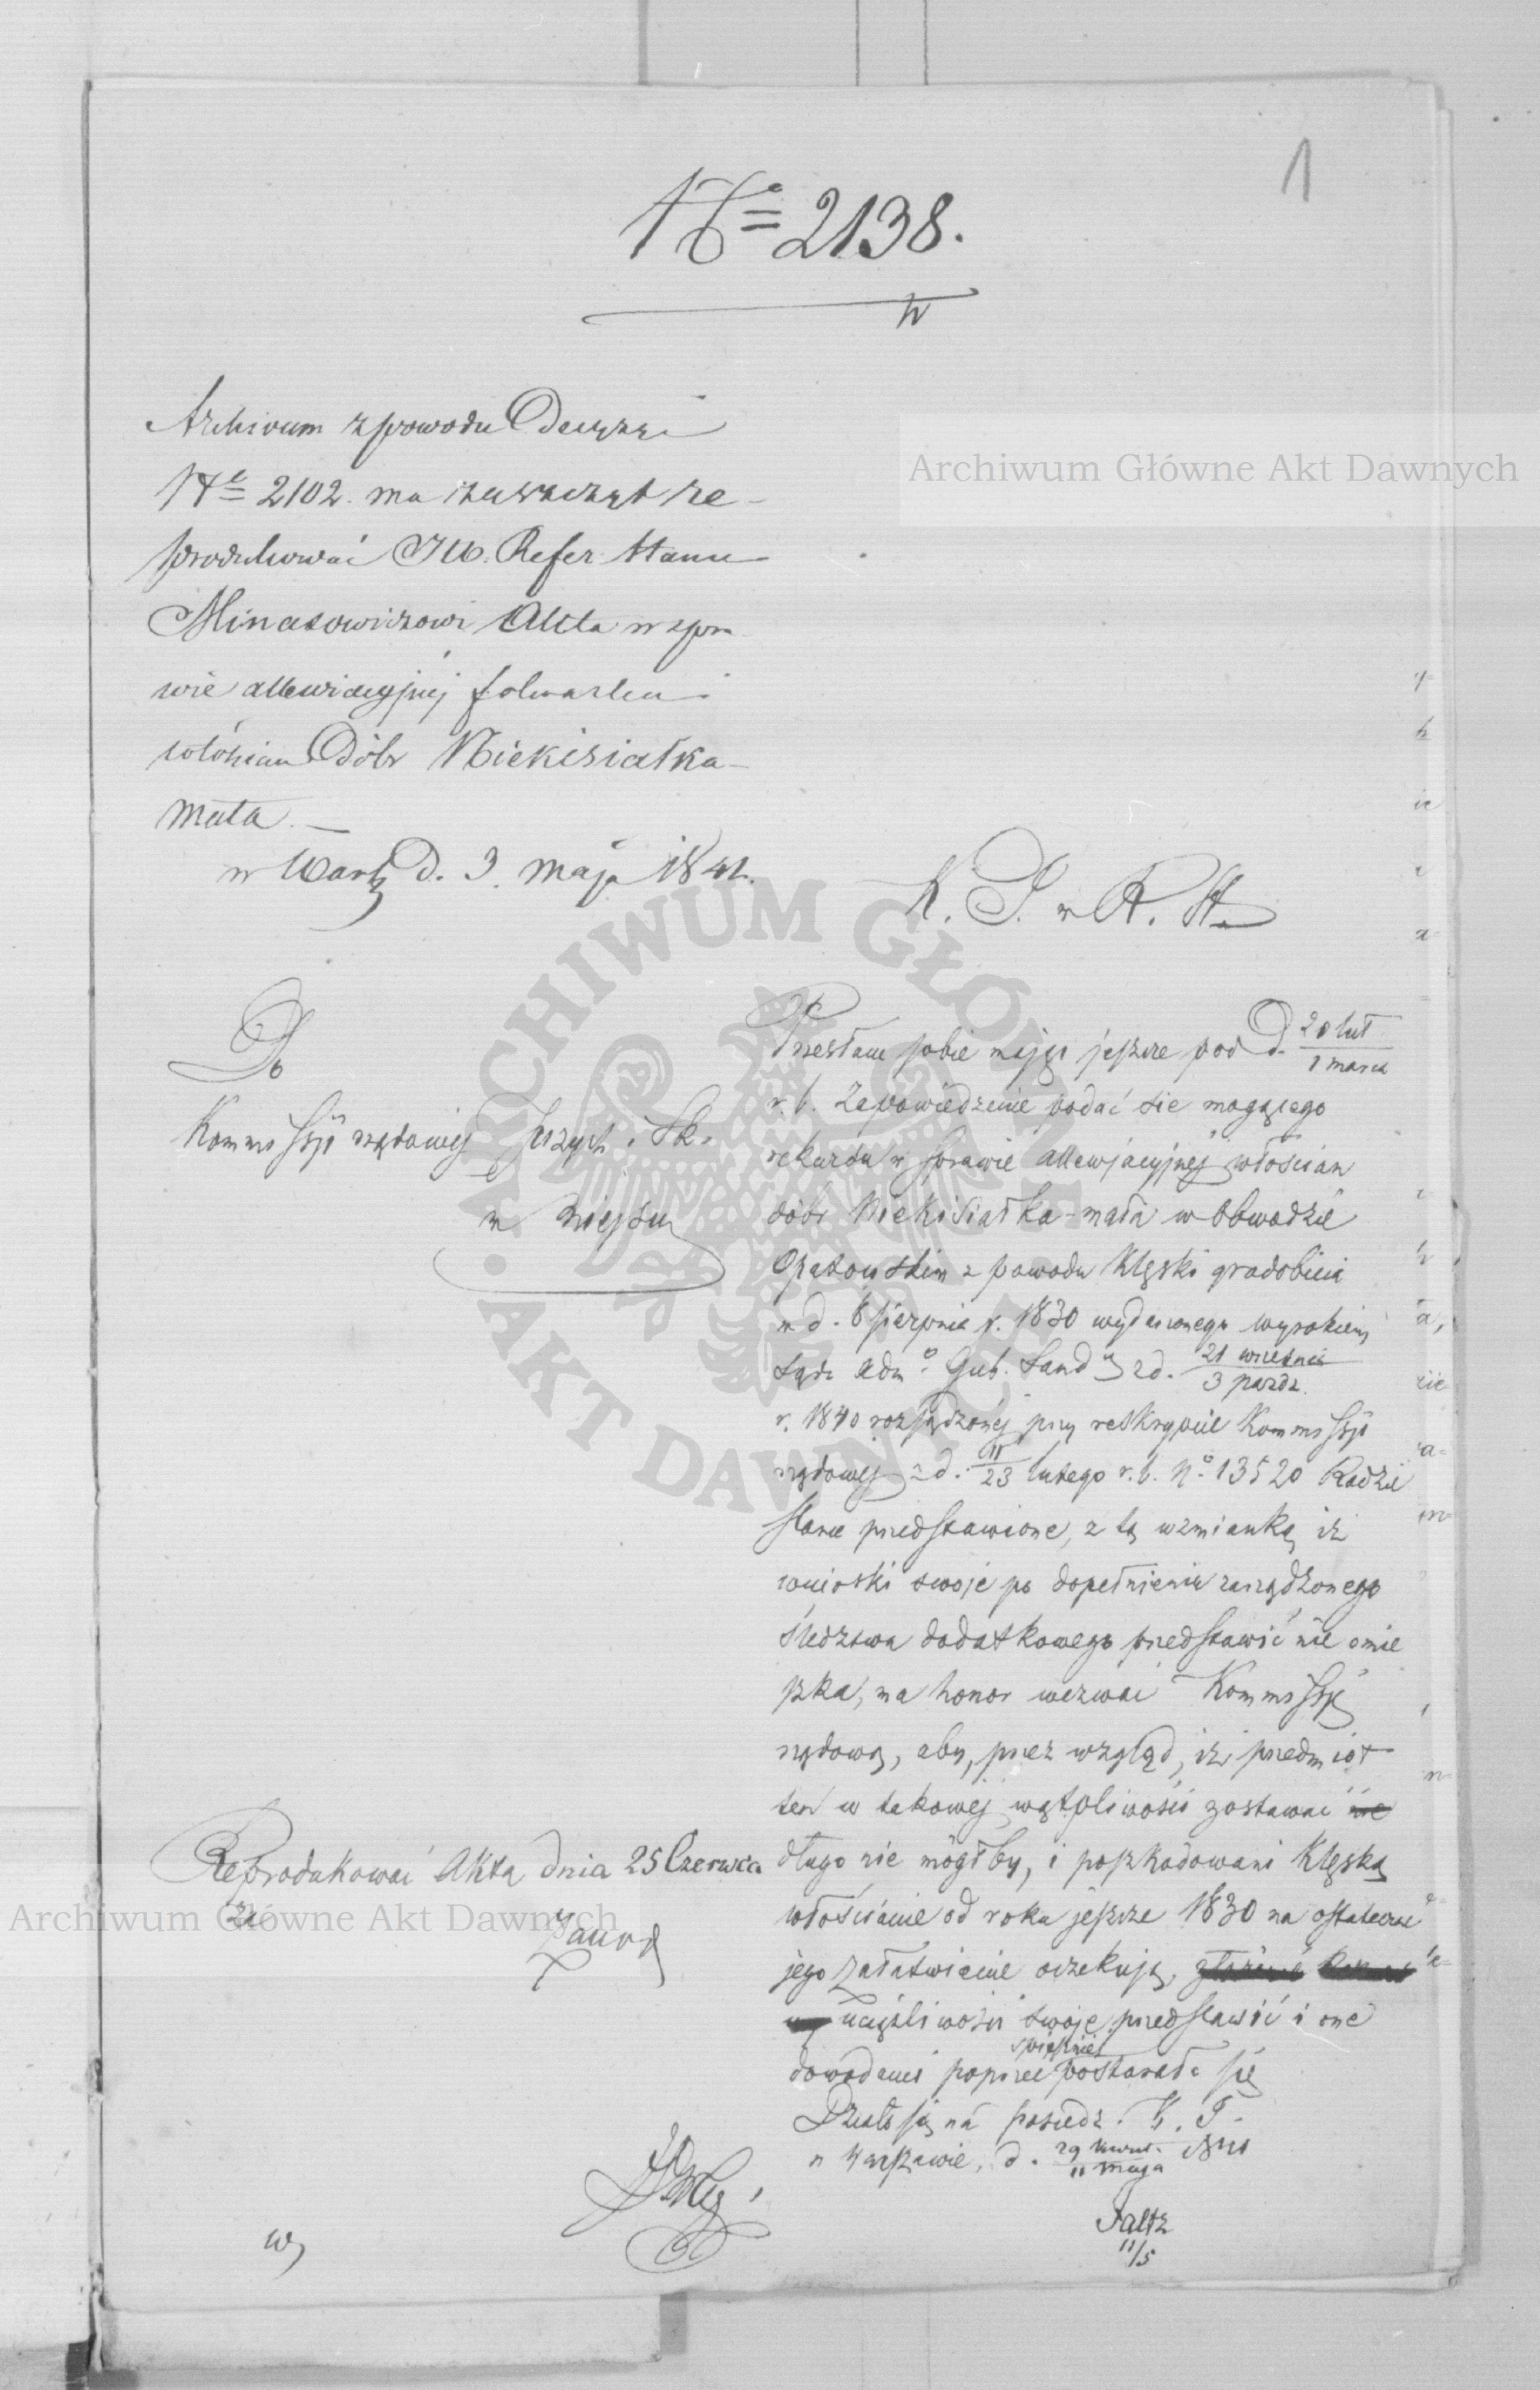 1
No 2138.
Archivum z powodu Decyzyi
No 2102. ma zaraz re-
produkować JW. Refer. Stanu
Minasowiczowi Akta w spra
wie allewiacyjnéj folwarku i
włościan Dóbr Niekisiałka-
Mała. —
w Warsz. D. 3. Maja 1841.
K. T. w R. St.
Do
Kommissyi rządowéj Przych. i Sk.
w miejscu
Przesłane sobie mając jeszcze pod D. 20 lut / 1 marca
r. b. Zapowiedzenie podać się mogącego
rekursu w sprawie allewjacyjnéj włościan
dóbr Niekisiałka-mała w Obwodzie
Opatowskim z powodu Klęski gradobicia
w d. 6 sierpnia r. 1830 wydarzonego wyrokiem
Sądu Adm. Gub. Sand. z d. 21 września / 3 paźdz.
r. 1840 rozsądzonéj przy reskrypcie Kommissyi
rządowéj z d. 11/23 lutego r. b. No 13520 Radzie
Stanu przedstawione, z tą wzmianką iż
wnioski swoje po dopełnieniu zarządzonego
śledztwa dodatkowego przedstawić nie omie
szka, ma honor wezwać Kommissyę
rządową, aby, przez wzgląd, iż przedmiot
ten w takowéj wątpliwości zostawać nie
długo nie mógłby, i poszkodowani Klęską
włościanie od roku jeszcze 1830 na ostateczne
jego załatwienie oczekują,
uciążliwości swoje przedstawić i one
dowodami poprzeć śpiesznie postarała się
Działo się na posiedz. K. T.
w Warszawie, d. 29 kwiet. / 11 maja 1841
Faltz
11/5
Reprodukować Akta dnia 25 Czerwca